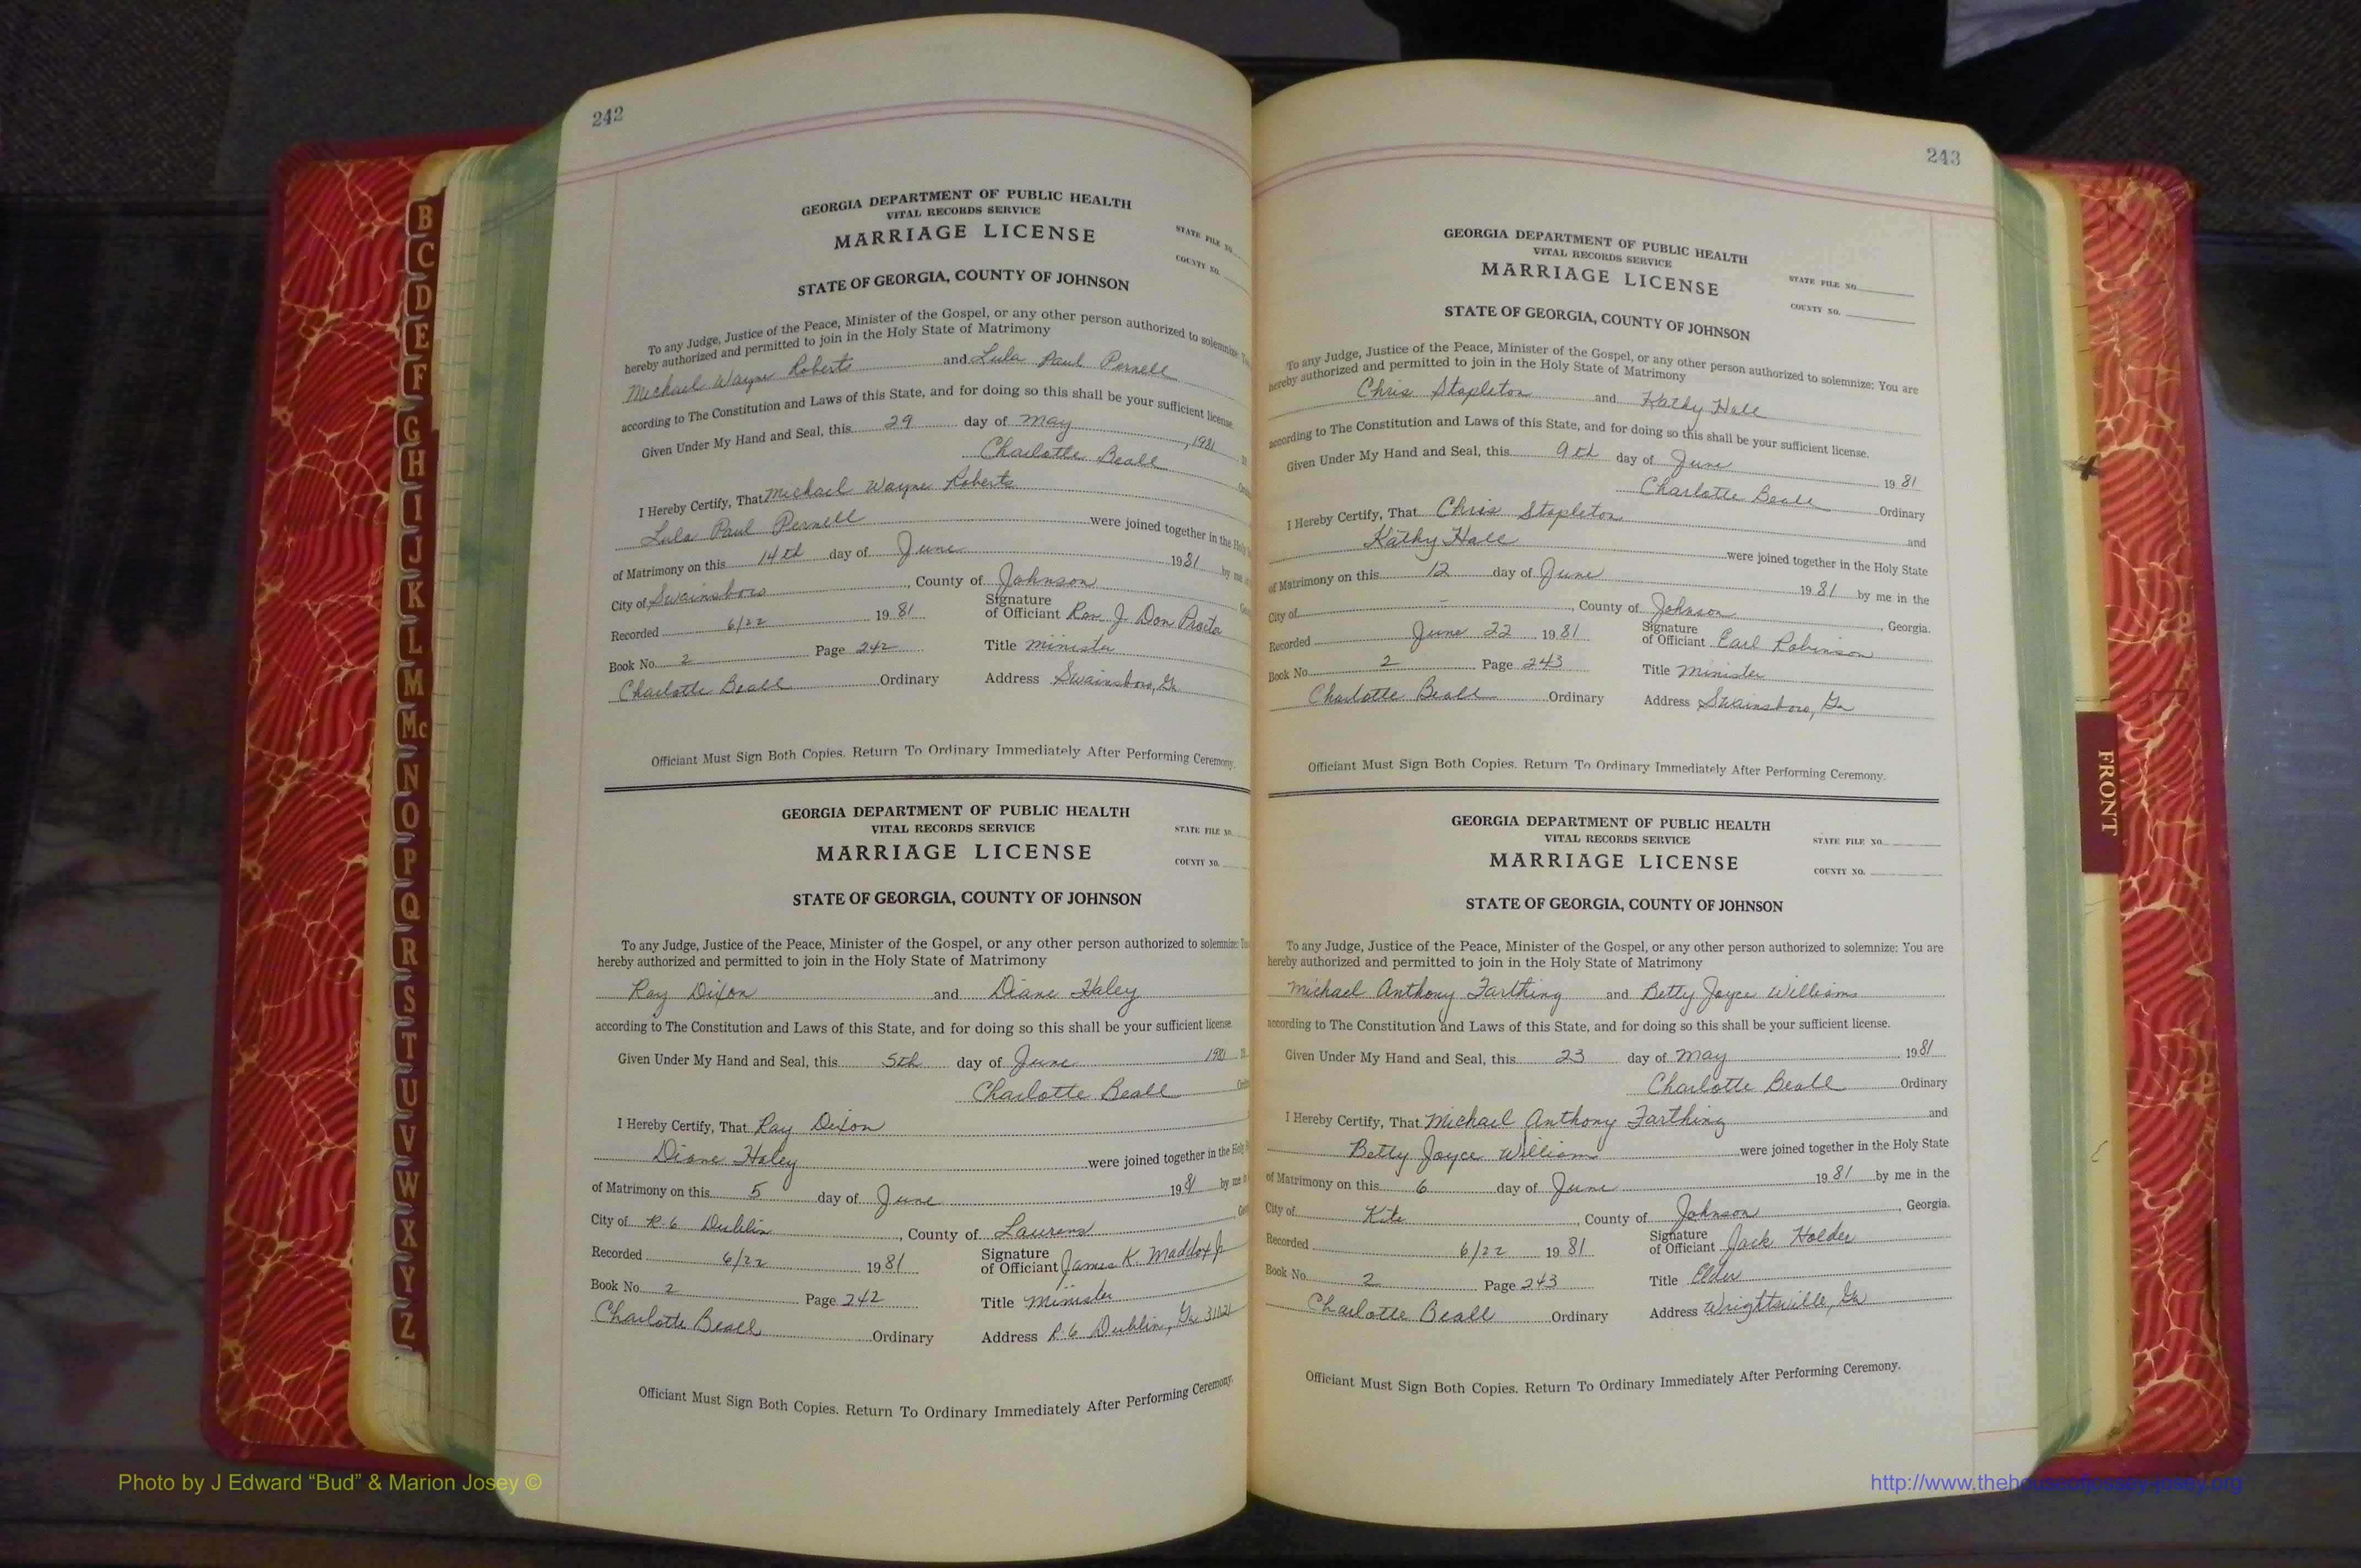 242
GEORGIA DEPARTMENT OF PUBLIC HEALTH
VITAL RECORDS SERVICE
MARRIAGE LICENSE
STATE FILE NO.
COUNTY NO.
STATE OF GEORGIA, COUNTY OF JOHNSON
To any Judge, Justice of the Peace, Minister of the Gospel, or any other person authorized to solemnize:
hereby authorized and permitted to join in the Holy State of Matrimony
Michael Wayne Roberts and Lula Paul Pernell
according to The Constitution and Laws of this State, and for doing so this shall be your sufficient license.
Given Under My Hand and Seal, this 29 day of May, 1981
Charlotte Beall
I Hereby Certify, That Michael Wayne Roberts
Lula Paul Pernell were joined together in the Holy
of Matrimony on this 14th day of June 1981 by me
City of Swainsboro, County of Johnson
Recorded 6/22 1981 Signature of Officiant J. Don
Book No. 2 Page 242 Title Minister
Charlotte Beall Ordinary Address Swainsboro, Ga
Officiant Must Sign Both Copies. Return To Ordinary Immediately After Performing Ceremony.
GEORGIA DEPARTMENT OF PUBLIC HEALTH
VITAL RECORDS SERVICE
MARRIAGE LICENSE
STATE FILE NO.
COUNTY NO.
STATE OF GEORGIA, COUNTY OF JOHNSON
To any Judge, Justice of the Peace, Minister of the Gospel, or any other person authorized to solemnize:
hereby authorized and permitted to join in the Holy State of Matrimony
Ray Dixon and Diane Haley
according to The Constitution and Laws of this State, and for doing so this shall be your sufficient license.
Given Under My Hand and Seal, this 5th day of June 1981
Charlotte Beall
I Hereby Certify, That Ray Dixon
Diane Haley were joined together in the Holy
of Matrimony on this 5 day of June 1981 by me
City of R.6 Dublin, County of Laurens
Recorded 6/22 1981 Signature of Officiant James K. Maddox Jr
Book No. 2 Page 242 Title Minister
Charlotte Beall Ordinary Address R.6 Dublin, Ga 31021
Officiant Must Sign Both Copies. Return To Ordinary Immediately After Performing Ceremony.
243
GEORGIA DEPARTMENT OF PUBLIC HEALTH
VITAL RECORDS SERVICE
MARRIAGE LICENSE
STATE FILE NO.
COUNTY NO.
STATE OF GEORGIA, COUNTY OF JOHNSON
To any Judge, Justice of the Peace, Minister of the Gospel, or any other person authorized to solemnize: You are
hereby authorized and permitted to join in the Holy State of Matrimony
Chris Stapleton and Kathy Hall
according to The Constitution and Laws of this State, and for doing so this shall be your sufficient license.
Given Under My Hand and Seal, this 9th day of June 1981
Charlotte Beall Ordinary
I Hereby Certify, That Chris Stapleton and
Kathy Hall were joined together in the Holy State
of Matrimony on this 12 day of June 1981 by me in the
City of -, County of Johnson, Georgia.
Recorded June 22 1981 Signature of Officiant Earl Robinson
Book No. 2 Page 243 Title Minister
Charlotte Beall Ordinary Address Swainsboro, Ga
Officiant Must Sign Both Copies. Return To Ordinary Immediately After Performing Ceremony.
GEORGIA DEPARTMENT OF PUBLIC HEALTH
VITAL RECORDS SERVICE
MARRIAGE LICENSE
STATE FILE NO.
COUNTY NO.
STATE OF GEORGIA, COUNTY OF JOHNSON
To any Judge, Justice of the Peace, Minister of the Gospel, or any other person authorized to solemnize: You are
hereby authorized and permitted to join in the Holy State of Matrimony
Michael Anthony Farthing and Betty Joyce Williams
according to The Constitution and Laws of this State, and for doing so this shall be your sufficient license.
Given Under My Hand and Seal, this 23 day of May 1981
Charlotte Beall Ordinary
I Hereby Certify, That Michael Anthony Farthing and
Betty Joyce Williams were joined together in the Holy State
of Matrimony on this 6 day of June 1981 by me in the
City of Kite, County of Johnson, Georgia.
Recorded 6/22 1981 Signature of Officiant Jack Holder
Book No. 2 Page 243 Title Elder
Charlotte Beall Ordinary Address Wrightsville, Ga
Officiant Must Sign Both Copies. Return To Ordinary Immediately After Performing Ceremony.
B
C
D
E
F
G
H
I
J
K
L
M
Mc
N
O
P
Q
R
S
T
U
V
W
X
Y
Z
FRONT
Photo by J Edward “Bud” & Marion Josey ©
http://www.thehouseofjossey-josey.org